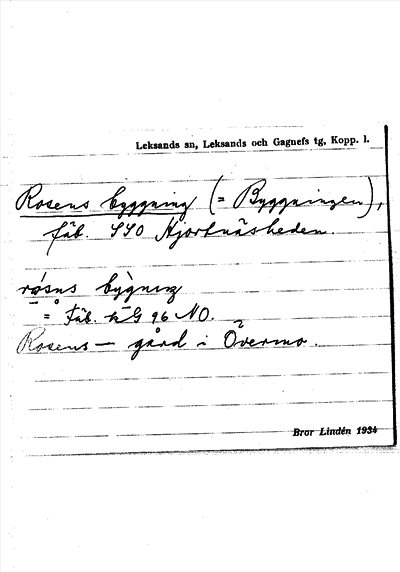 Leksands sn, Leksands och Gagnefs tg, Kopp. l.
Rosens byggning (= Byggningen),
fäb. SSO Hjortnäsheden.
rósns býgning
= Fäb. k G 96 NO.
Rosens — gård i Övermo.
Bror Lindén 1934